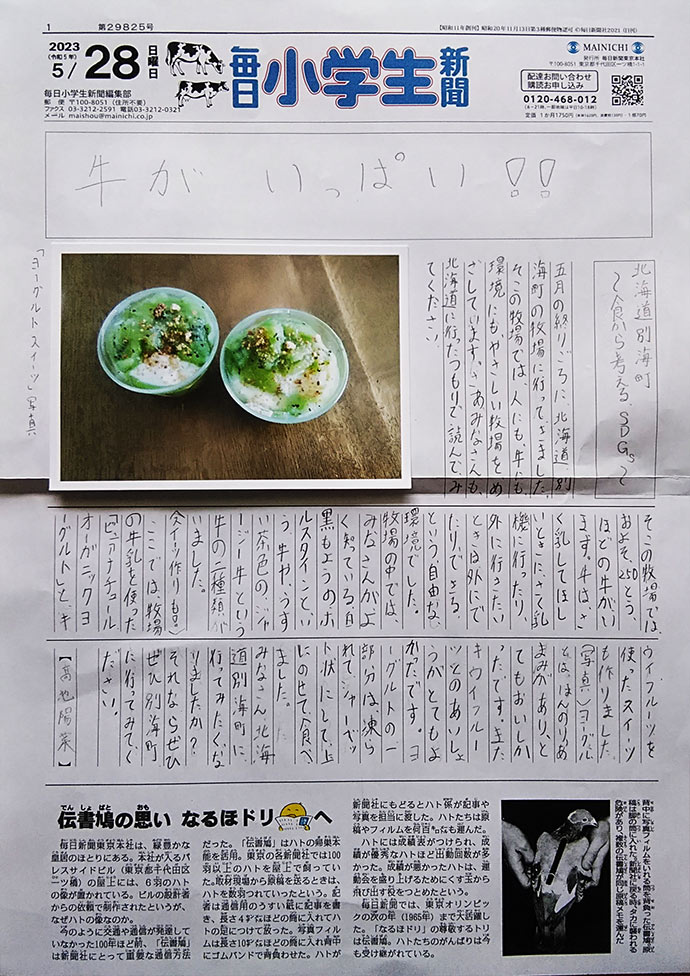 1
第29825号
【昭和11年創刊】昭和20年11月13日第3種郵便物認可 ©毎日新聞社2021 (日刊)
2023
(令和5年)
5/28
日曜日
毎日小学生新聞
MAINICHI
発行所 毎日新聞東京本社
〒100-8051 東京都千代田区一ツ橋1-1-1
配達お問い合わせ
購読お申し込み
0120-468-012
定価 1か月1750円
毎日小学生新聞編集部
郵便 〒100-8051 (住所不要)
ファクス 03-3212-2591 電話03-3212-0321
メール maishou@mainichi.co.jp
牛が いっぱい!!
北海道別海町
〜食から考える、SDGs〜
五月の終りごろに、北海道別
海町の牧場に行ってきました。
そこの牧場では、人にも、牛にも、
環境にもやさしい牧場をめ
ざしています。さあみなさんも、
北海道に行ったつもりで読んでみ
てください
「ヨーグルトスイーツ」写真
そこの牧場では、
およそ250とう
ほどの牛がい
ます。牛は、さ
く乳してほし
いときにさく乳
機に行ったり、
外に行きたい
ときは外にで
たり、できる。
という自由な、
環境でした。
牧場の中では、
みなさんがよ
く知っている、白
黒もようのホ
ルスタインとい
う、牛や、うす
い茶色のジャ
ージー牛という
牛の二種類が
いました。
(スイーツ作りも!!)
ここでは、牧場
の牛乳を使った
「ピュアナチュール
オーガニックヨ
ーグルト」と、キ
ウイフルーツを
使ったスイーツ
も作りました。
(写真)ヨーグル
とは、ほんのりあ
まみがあり、と
てもおいしか
ったです。また
キウイフルー
ツとのあいしょ
うがとてもよ
かったです。ヨ
ーグルトの一
部分は凍ら
れてシャーベッ
ト状にして、上
にのせて食べ
ました。
みなさん、北海
道別海町に、
行ってみたくな
りましたか?
それならぜひ
ぜひ別海町
に行ってみてく
ださい。
【高地陽菜】
伝書鳩の思い なるほドリへ
でんしょばと おも
毎日新聞東京本社は、緑豊かな
皇居のほとりにある。本社が入るパ
レスサイドビル(東京都千代田区
一ツ橋)の屋上には、6羽のハト
の像が置かれている。ビルの設計者
からの依頼で制作されたというが、
なぜハトの像なのか。
今のように交通や通信が発達して
いなかった100年ほど前、「伝書鳩」
は新聞社にとって重要な通信方法
だった。「伝書鳩」はハトの帰巣本
能を活用。東京の各新聞社では100
羽以上のハトを屋上で飼ってい
た。取材現場から原稿を送るときは、
ハトを数羽わたったという。記者
は通信用のうすい紙に記事を書
き、長さ4㌢などの筒に入れてハト
の足につけて放った。写真フィル
ムは長さ10㌢などの筒に入れ背中
にゴムバンドで背負わせた。ハトが
新聞社にもどるとハト係が記事や
写真を担当に渡した。ハトたちは原
稿やフィルムを何百㌔も運んだ。
ハトには成績表がつけられ、成績
が優秀なハトほど出動回数が多
かった。成績が悪かったハトは、運
動会を盛り上げるためにくす玉から
飛び出す役をつとめたという。
毎日新聞では、東京オリンピッ
クの次の年(1965年)まで大活躍し
た。「なるほドリ」の尊敬するトリ
は伝書鳩。ハトたちのがんばりは今
も受け継がれている。